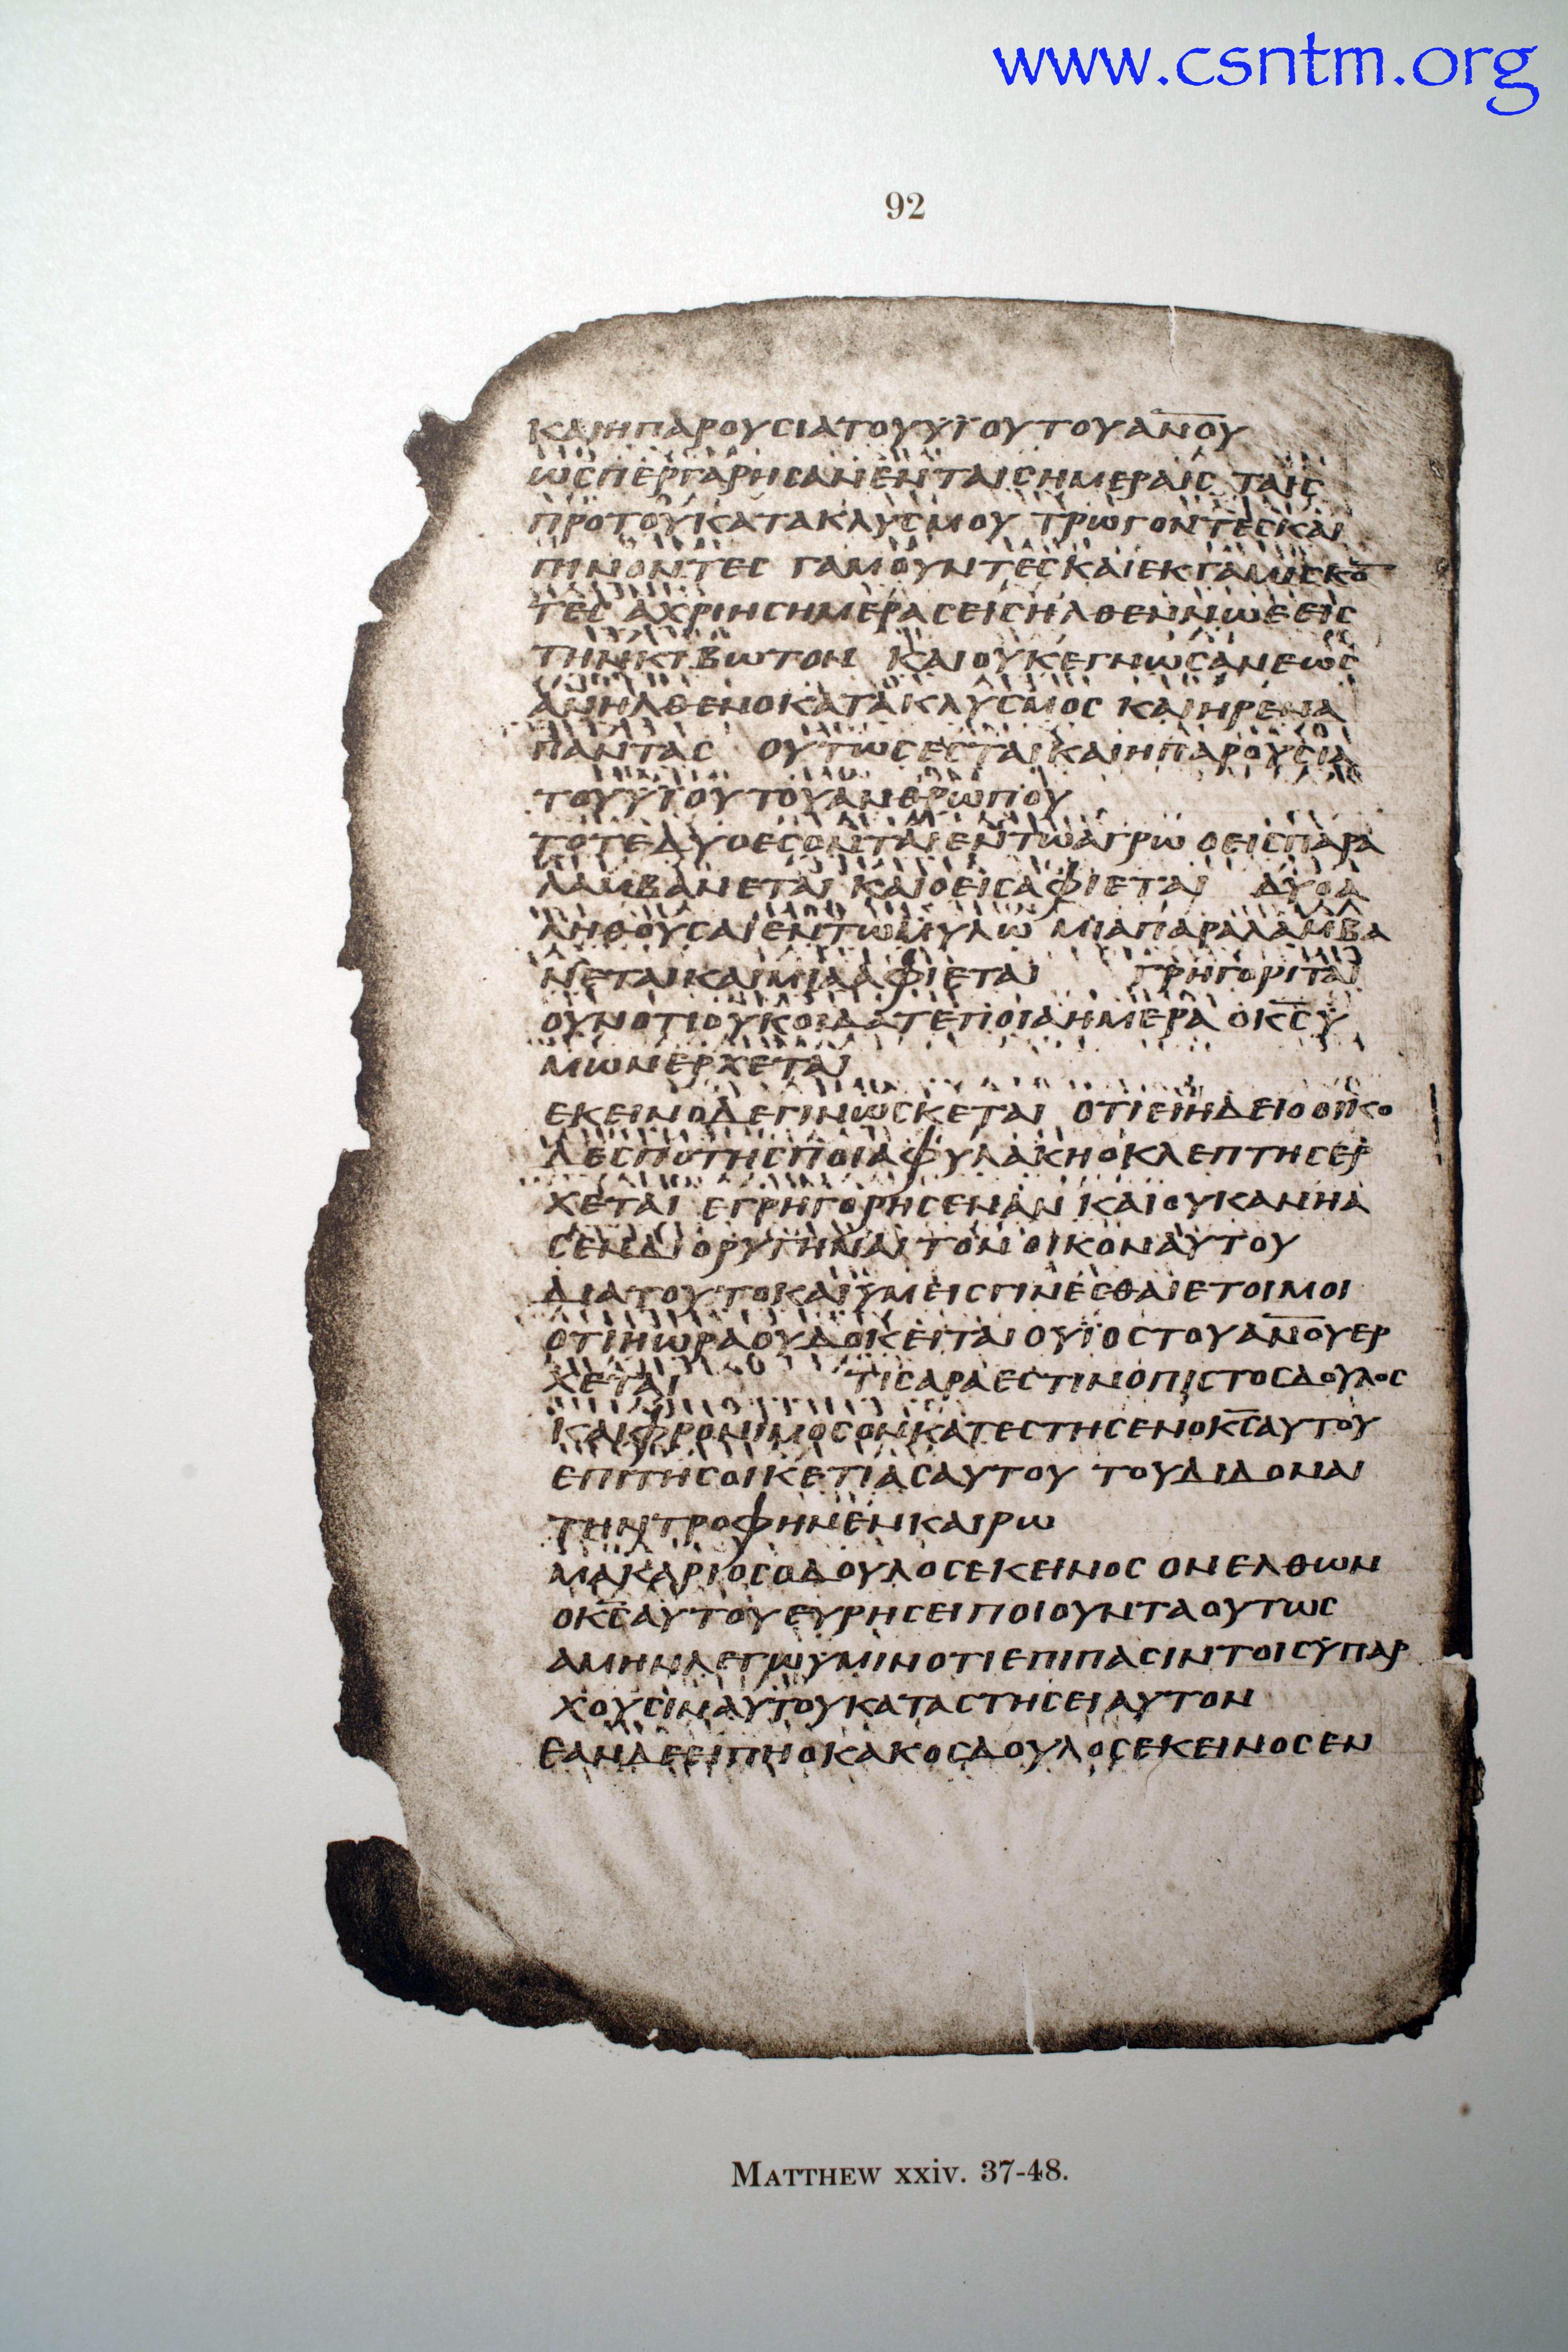 www.csntm.org
92
ΚΑΙΗΠΑΡΟΥCΙΑΤΟΥΥΪΟΥΤΟΥΑΝ̅Ο̅Υ
ΩCΠΕΡΓΑΡΗCΑΝΕΝΤΑΙCΗΜΕΡΑΙC ΤΑΙC
ΠΡΟΤΟΥΚΑΤΑΚΛΥCΜΟΥ ΤΡΩΓΟΝΤΕCΚΑΙ
ΠΙΝΟΝΤΕC ΓΑΜΟΥΝΤΕCΚΑΙΕΚΓΑΜΙCΚΟ̅
ΤΕC ΑΧΡΙΗCΗΜΕΡΑCΕΙCΗΛΘΕΝΝΩΕΕΙC
ΤΗΝΚΙΒΩΤΟΝ ΚΑΙΟΥΚΕΓΝΩCΑΝΕΩC
ΑΝΗΛΘΕΝΟΚΑΤΑΚΛΥCΜΟC ΚΑΙΗΡΕΝΑ
ΠΑΝΤΑC ΟΥΤΩCΕCΤΑΙΚΑΙΗΠΑΡΟΥCΙΑ
ΤΟΥΥΪΟΥΤΟΥΑΝΘΡΩΠΟΥ
ΤΟΤΕΔΥΟΕCΟΝΤΑΙΕΝΤΩΑΓΡΩ ΟΕΙCΠΑΡΑ
ΛΑΜΒΑΝΕΤΑΙ ΚΑΙΟΕΙCΑΦΙΕΤΑΙ ΔΥΟΑ
ΛΗΘΟΥCΑΙΕΝΤΩΜΥΛΩ ΜΙΑΠΑΡΑΛΑΜΒΑ
ΝΕΤΑΙΚΑΙΜΙΑΑΦΙΕΤΑΙ ΓΡΗΓΟΡΙΤΑΙ
ΟΥΝΟΤΙΟΥΚΟΙΔΑΤΕΠΟΙΑΗΜΕΡΑ ΟΚ̅C̅Υ
ΜΩΝΕΡΧΕΤΑΙ
ΕΚΕΙΝΟΔΕΓΙΝΩCΚΕΤΑΙ ΟΤΙΕΙΗΔΕΙΟΟΙΚΟ
ΔΕCΠΟΤΗCΠΟΙΑΦΥΛΑΚΗΟΚΛΕΠΤΗCΕΡ
ΧΕΤΑΙ ΕΓΡΗΓΟΡΗCΕΝΑΝ ΚΑΙΟΥΚΑΝΗΑ
CΕΝΔΙΟΡΥΓΗΝΑΙΤΟΝΟΙΚΟΝΑΥΤΟΥ
ΔΙΑΤΟΥΤΟΚΑΙΥΜΕΙCΓΙΝΕCΘΑΙΕΤΟΙΜΟΙ
ΟΤΙΗΩΡΑΟΥΔΟΚΕΙΤΑΙΟΥΪΟCΤΟΥΑΝ̅Ο̅ΥΕΡ
ΧΕΤΑΙ ΤΙCΑΡΑΕCΤΙΝΟΠΙCΤΟCΔΟΥΛΟC
ΚΑΙΦΡΟΝΙΜΟCΟΝΚΑΤΕCΤΗCΕΝΟΚ̅C̅ΑΥΤΟΥ
ΕΠΙΤΗCΟΙΚΕΤΙΑCΑΥΤΟΥ ΤΟΥΔΙΔΟΝΑΙ
ΤΗΝΤΡΟΦΗΝΕΝΚΑΙΡΩ
ΜΑΚΑΡΙΟCΟΔΟΥΛΟCΕΚΕΙΝΟC ΟΝΕΛΘΩΝ
ΟΚ̅C̅ΑΥΤΟΥΕΥΡΗCΕΙΠΟΙΟΥΝΤΑΟΥΤΩC
ΑΜΗΝΛΕΓΩΥΜΙΝΟΤΙΕΠΙΠΑCΙΝΤΟΙCΥΠΑΡ
ΧΟΥCΙΝΑΥΤΟΥΚΑΤΑCΤΗCΕΙΑΥΤΟΝ
ΕΑΝΔΕΕΙΠΗΟΚΑΚΟCΔΟΥΛΟCΕΚΕΙΝΟCΕΝ
MATTHEW xxiv. 37-48.